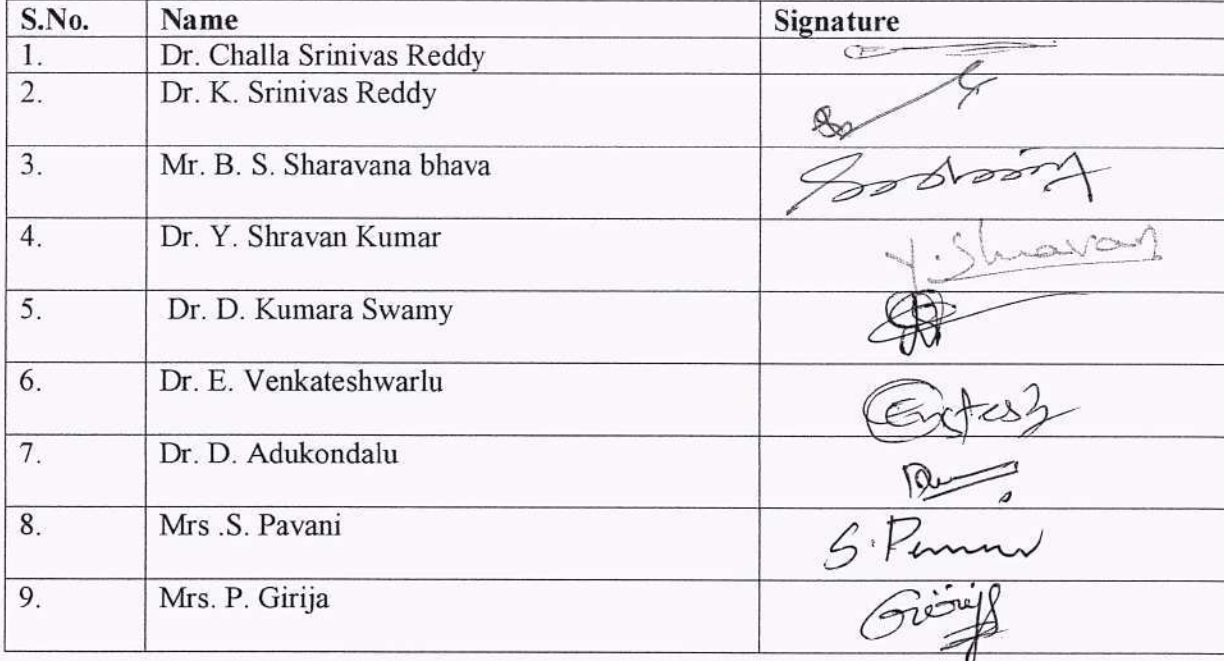 S.No. Name Signature
1. Dr. Challa Srinivas Reddy
2. Dr. K. Srinivas Reddy
3. Mr. B. S. Sharavana bhava
4. Dr. Y. Shravan Kumar Y. Shravan
5. Dr. D. Kumara Swamy
6. Dr. E. Venkateshwarlu
7. Dr. D. Adukondalu
8. Mrs .S. Pavani
9. Mrs. P. Girija